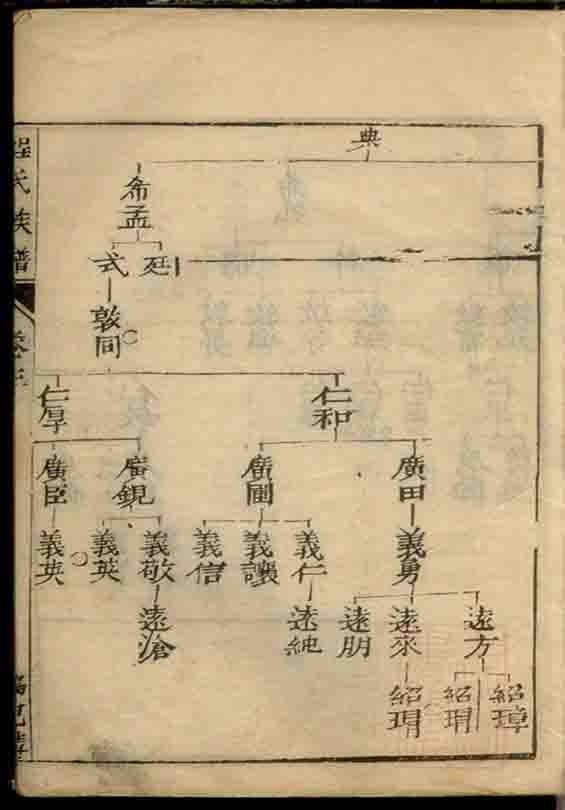 典
希孟
廷 式
敦同
仁和 仁厚
廣田 廣圃 廣鋧 廣臣
義勇 義仁 義讓 義信 義敬 義英 義英
遠方 遠來 遠朋 遠純 遠滄
紹璋 紹珇 紹珇
程氏族譜